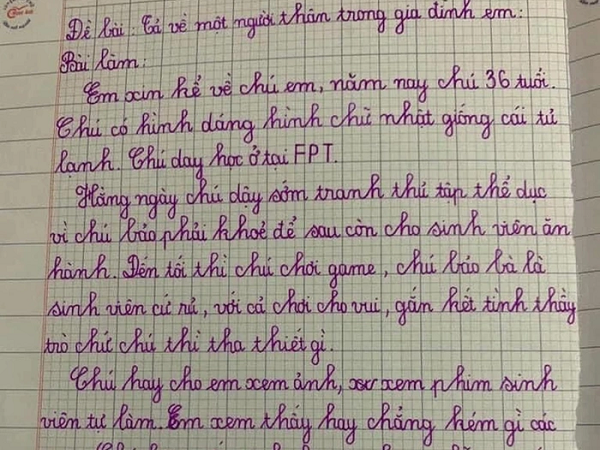 Đề bài: Tả về một người thân trong gia đình em:
Bài làm:
Em xin kể về chú em, năm nay chú 36 tuổi.
Chú có hình dáng hình chữ nhật giống cái tủ
lạnh. Chú dạy học ở tại FPT.
Hằng ngày chú dậy sớm tranh thủ tập thể dục
vì chú bảo phải khoẻ để sau còn cho sinh viên ăn
hành. Đến tối thì chú chơi game, chú bảo bà là
sinh viên cứ rủ, với cả chơi cho vui, gắn kết tình thầy
trò chứ chú thì tha thiết gì.
Chú hay cho em xem ảnh, xem phim sinh
viên tự làm. Em xem thấy hay chẳng kém gì các